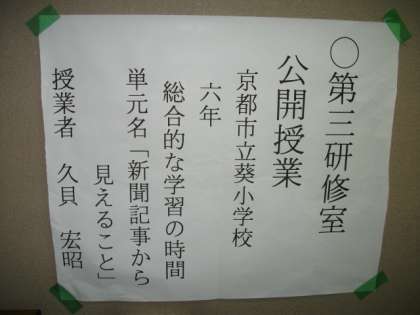 〇第三研修室
公開授業
京都市立葵小学校
六年
総合的な学習の時間
単元名「新聞記事から
見えること」
授業者 久貝 宏昭